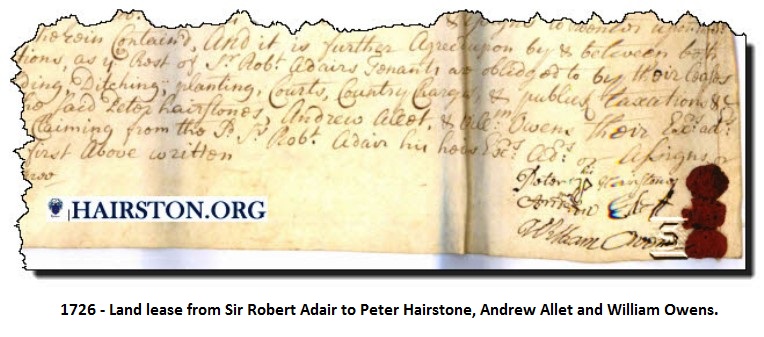 herein Contain'd, And it is further Agreed upon by & between both
tions, as ye Rest of Sr. Robt. Adairs Tenants are obliged to by their Leases
ding, Ditching, planting, Courts, Country Charges & publick taxations &c
he said Peter hairstones, Andrew Alett, & Willm. Owens Their Exrs. adrs.
Claiming from the Sd. Sr. Robt. Adair his heirs Exrs. Adrs. or Assigns or
first Above written
Peter Hairstones
Andrew
William Owens
HAIRSTON.ORG
1726 - Land lease from Sir Robert Adair to Peter Hairstone, Andrew Allet and William Owens.